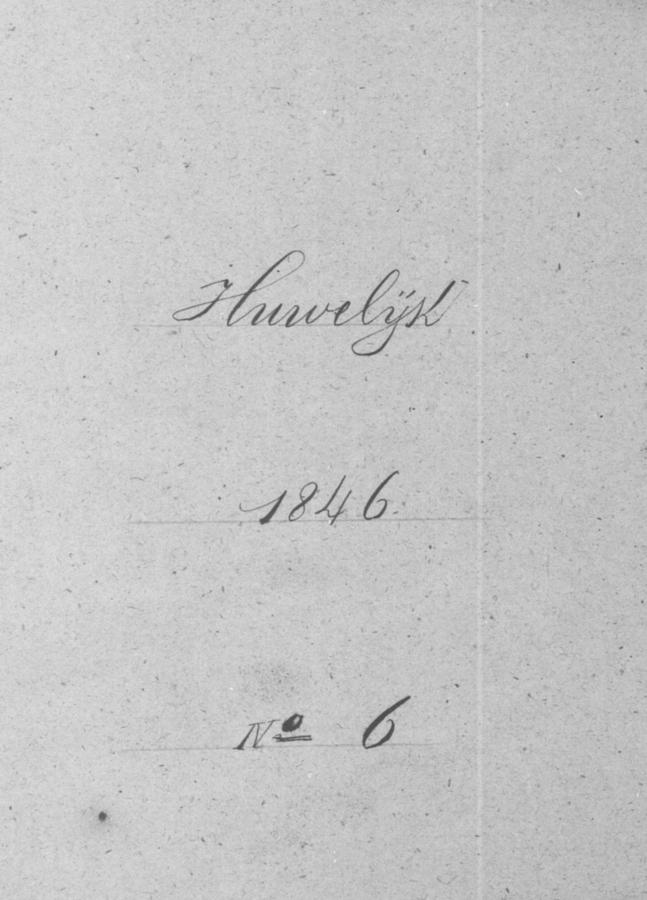 Huwelijk
1846.
No 6